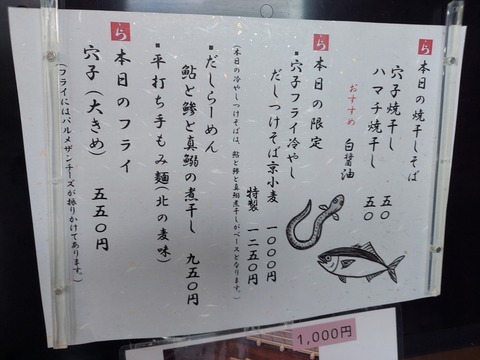 ら 本日の焼干しそば
穴子焼干し 五〇
ハマチ焼干し 五〇
おすすめ 白醤油
ら 本日の限定
・穴子フライ冷やし
だしつけそば京小麦 一〇〇〇円
特製 一二五〇円
(本日の冷やしつけそばは、鮎と鯵と真鰯煮干しがベースとなります。)
・だしらーめん
鮎と鯵と真鰯の煮干し 九五〇円
・平打ち手もみ麺(北の麦味)
ら 本日のフライ
穴子(大きめ) 五五〇円
(フライにはパルメザンチーズが振りかけてあります。)
1,000円